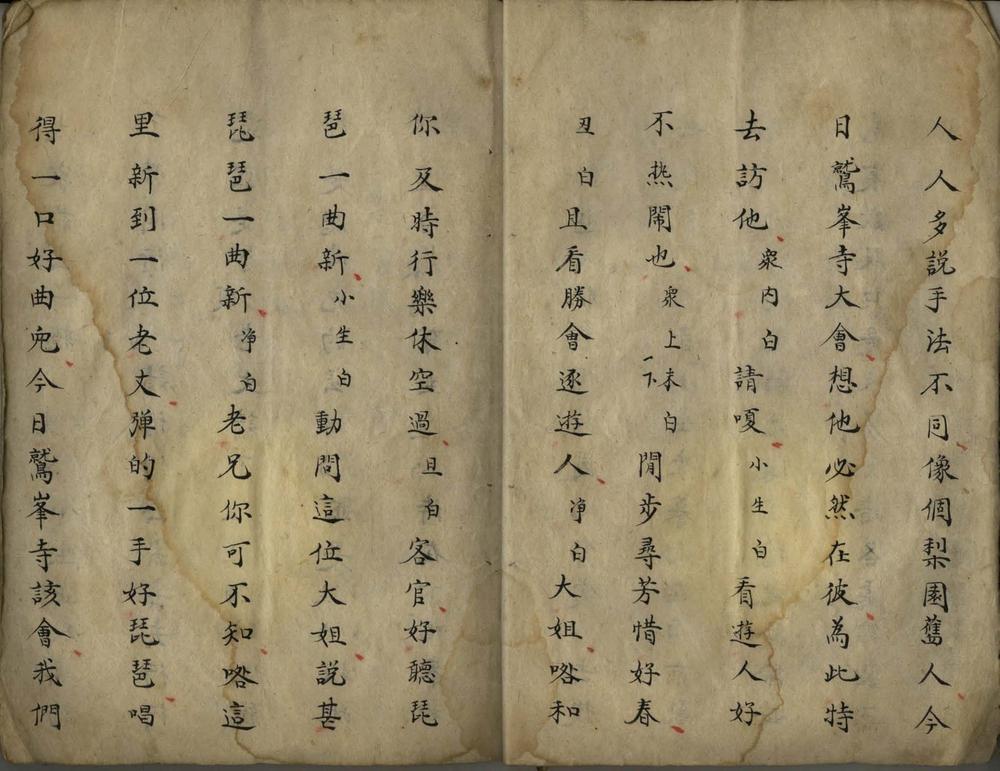 人人多説手法不同像個梨園舊人今
日鷲峯寺大會想他必然在彼為此特
去訪他衆內白請嗄小生白看遊人好
不热鬧也衆上末白一下閒步尋芳惜好春
丑白且看勝會逐遊人净白大姐咯和
你及時行樂休空過旦白客官好聽琵
琶一曲新小生白動問這位大姐説甚
琵琶一曲新净白老兄你可不知咯這
里新到一位老丈弹的一手好琵琶唱
得一口好曲兜今日鷲峯寺該會我們